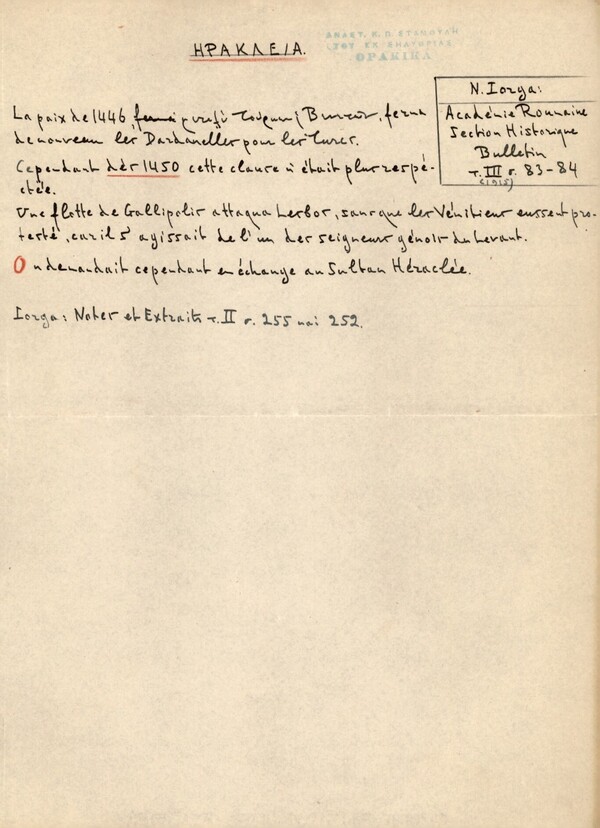 ΗΡΑΚΛΕΙΑ.
ΑΝΑΣΤ. Κ. Π. ΣΤΑΜΟΥΛΗ
ΤΟΥ ΕΚ ΣΗΛΥΒΡΙΑΣ
ΘΡΑΚΙΚΑ
N. Iorga:
Académie Roumaine
Section Historique
Bulletin
τ. III σ. 83-84
(1915)
La paix de 1446, μεταξύ Τούρκων ή Βενετών, ferma
de nouveau les Dardanelles pour les turcs.
Cependant dés 1450 cette clause n'était plus respé-
ctée.
Une flotte de Gallipolis attaqua Lesbos, sans que les Vénitiens eussent pro-
testé, car il s'agissait de l'un des seigneurs génois du Levant.
On demandait cependant en échange au Sultan Héraclée.
Iorga: Notes et Extraits τ. II σ. 255 και 252.